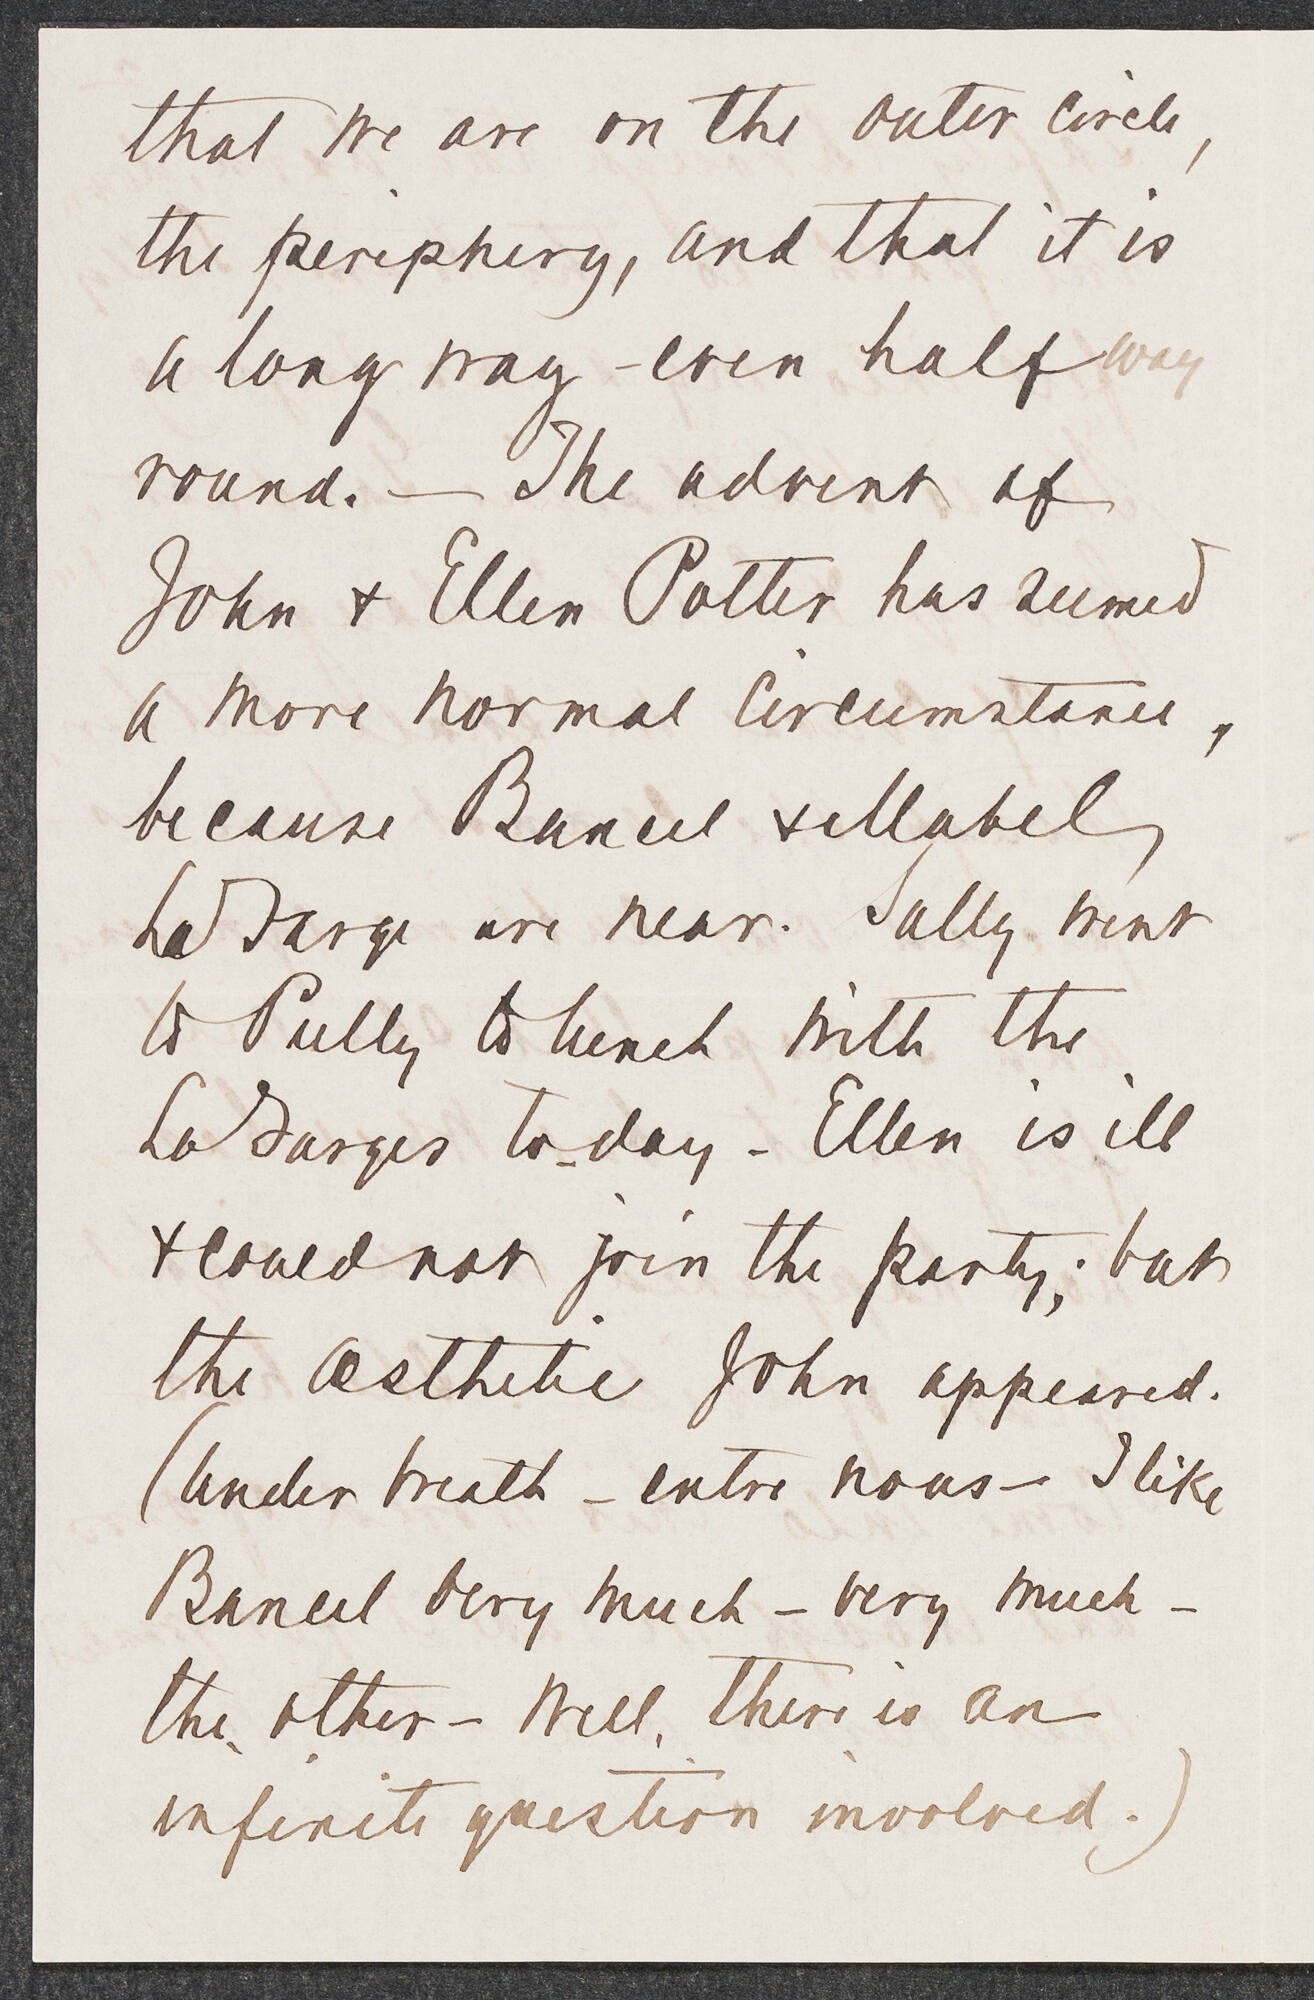 that we are on the outer circle,
the periphery, and that it is
a long way - even half way
round. — The advent of
John & Ellen Potter has seemed
a more normal circumstance,
because Bancel & Mabel
La Farge are near. Sally went
to Pully to lunch with the
La Farges to-day - Ellen is ill
& could not join the party; but
the æsthetic John appeared.
(Under breath - entre nous - I like
Bancel very much - very much -
the other - Well, there is an
infinite question involved.)